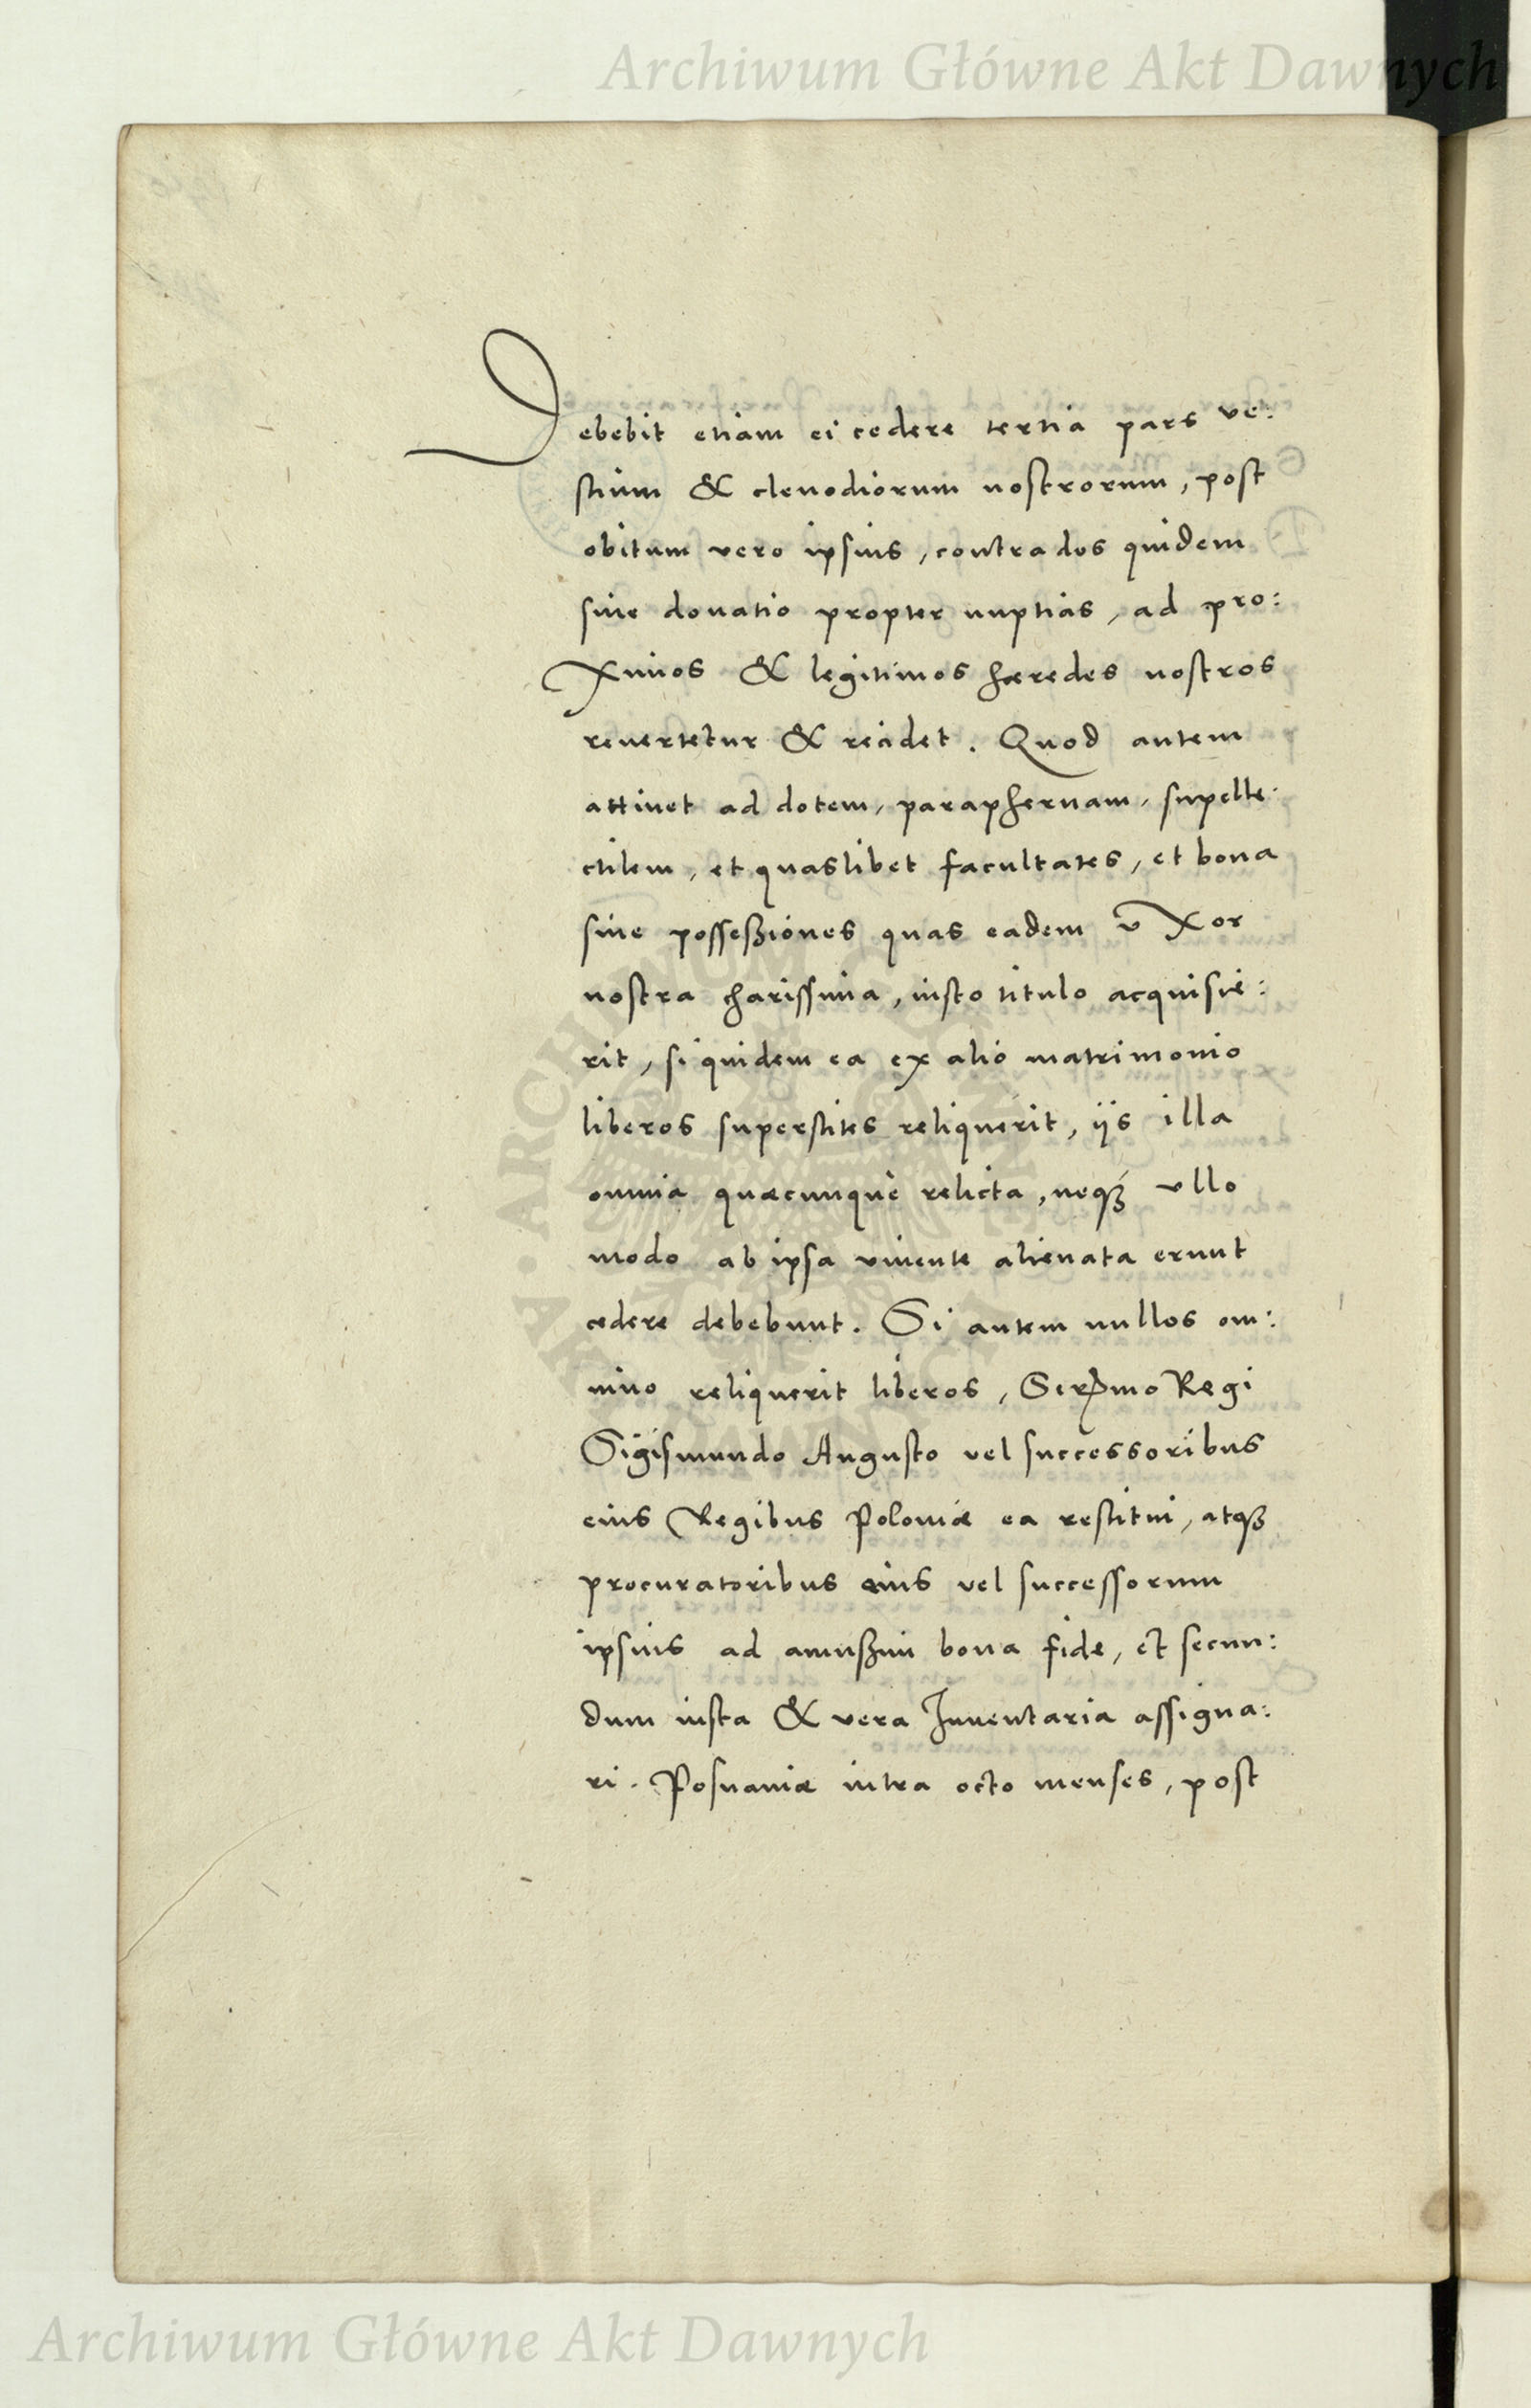 Archiwum Główne Akt Dawnych
Debebit etiam ei cedere tertia pars ve:
stium & clenodiorum nostrorum, post
obitum vero ipsius, contrados quidem
siue donatio propter nuptias, ad pro:
ximos & legitimos hæredes nostros
reuertetur & recidet. Quod autem
attinet ad dotem, paraphernam, supelle:
ctilem, et quaslibet facultates, et bona
siue possessiones quas eadem vxor
nostra charissima, iusto titulo acquisie:
rit, si quidem ea ex alio matrimonio
liberos superstites reliquerit, ijs illa
omnia quæcunque relicta, neqꝫ vllo
modo ab ipsa viuente alienata erunt
cedere debebunt. Si autem nullos om:
nino reliquerit liberos, Serᵐᵒ Regi
Sigismundo Augusto vel successoribus
eius Regibus Poloniæ ea restitui, atqꝫ
procuratoribus eius vel successorum
ipsius ad amussim bona fide, et secun:
dum iusta & vera Inuentaria assigna:
ri. Posnaniæ intra octo menses, post
Archiwum Główne Akt Dawnych